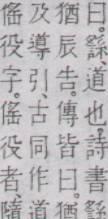 曰。繇、道也。詩書繇
猶辰告。傳皆曰。猶
及導引、古同作道
傜役字。傜役者隨